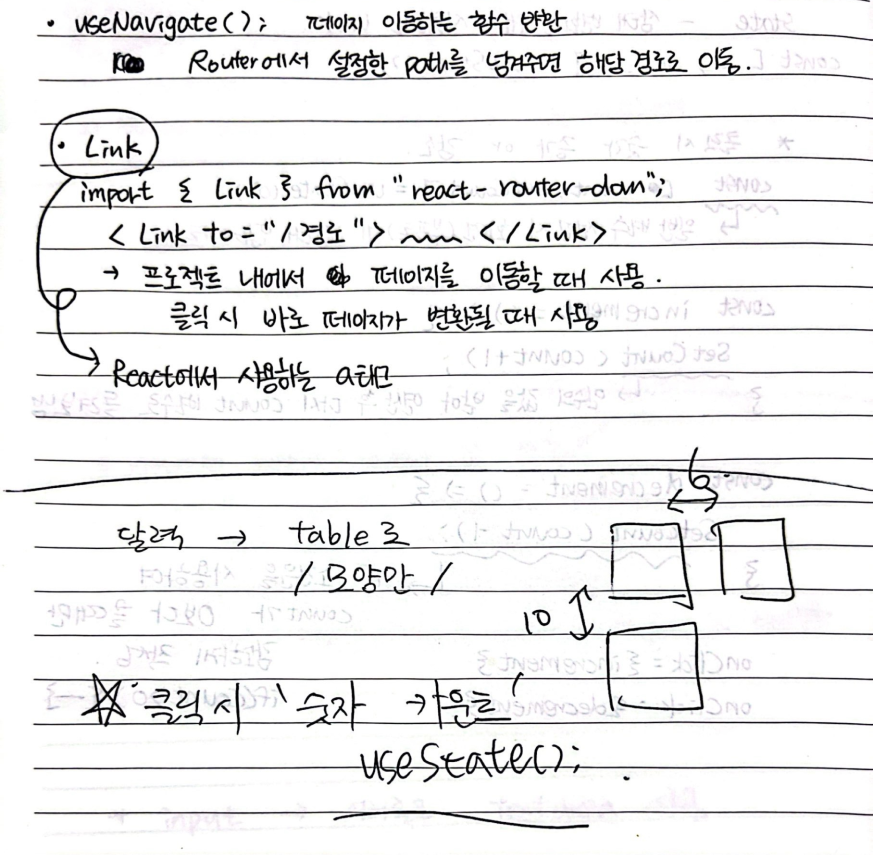 · useNavigate(); 페이지 이동하는 함수 반환
Router에서 설정한 path를 넘겨주면 해당 경로로 이동.
· Link
import { Link } from "react-router-dom";
< Link to = "/경로"> </Link>
→ 프로젝트 내에서 페이지를 이동할 때 사용.
클릭 시 바로 페이지가 변환될 때 사용
→ React에서 사용하는 a태그
6
달력 → table로
/ 모양만 /
10
☆ "클릭 시" 숫자 → 카운트
useState();